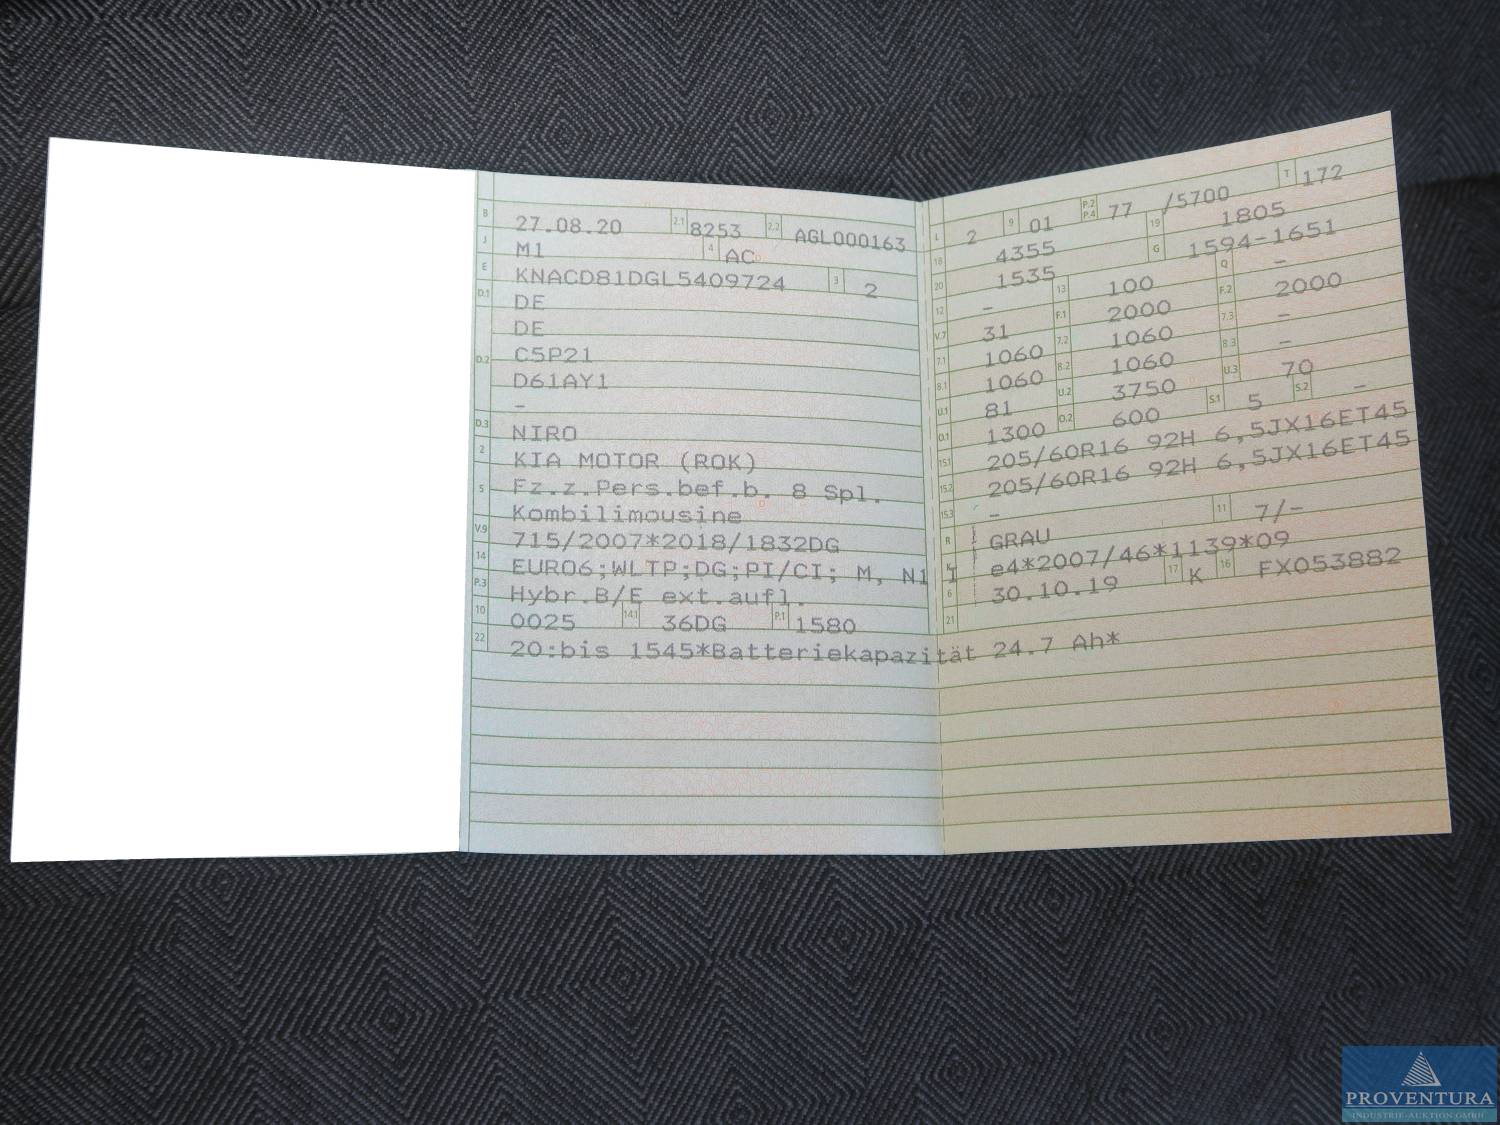 B 27.08.20 2.1 8253 2.2 AGL000163
J M1 4 AC
E KNACD81DGL5409724 3 2
D.1 DE
DE
D.2 C5P21
D61AY1
-
D.3 NIRO
2 KIA MOTOR (ROK)
5 Fz.z.Pers.bef.b. 8 Spl.
Kombilimousine
V.9 715/2007*2018/1832DG
14 EURO6;WLTP;DG;PI/CI; M, N1 I
P.3 Hybr.B/E ext.aufl.
10 0025 14.1 36DG P.1 1580
22 20:bis 1545*Batteriekapazität 24.7 Ah*
L 2 9 01 P.2 P.4 77 /5700 T 172
18 4355 19 1805
20 1535 G 1594-1651
12 - 13 100 Q -
V.7 31 F.1 2000 F.2 2000
7.1 1060 7.2 1060 7.3 -
8.1 1060 8.2 1060 8.3 -
U.1 81 U.2 3750 U.3 70
O.1 1300 O.2 600 S.1 5 S.2 -
15.1 205/60R16 92H 6,5JX16ET45
15.2 205/60R16 92H 6,5JX16ET45
15.3 -
R GRAU 11 7/-
K e4*2007/46*1139*09
6 30.10.19 17 K 16 FX053882
21
PROVENTURA
INDUSTRIE-AUKTION GMBH